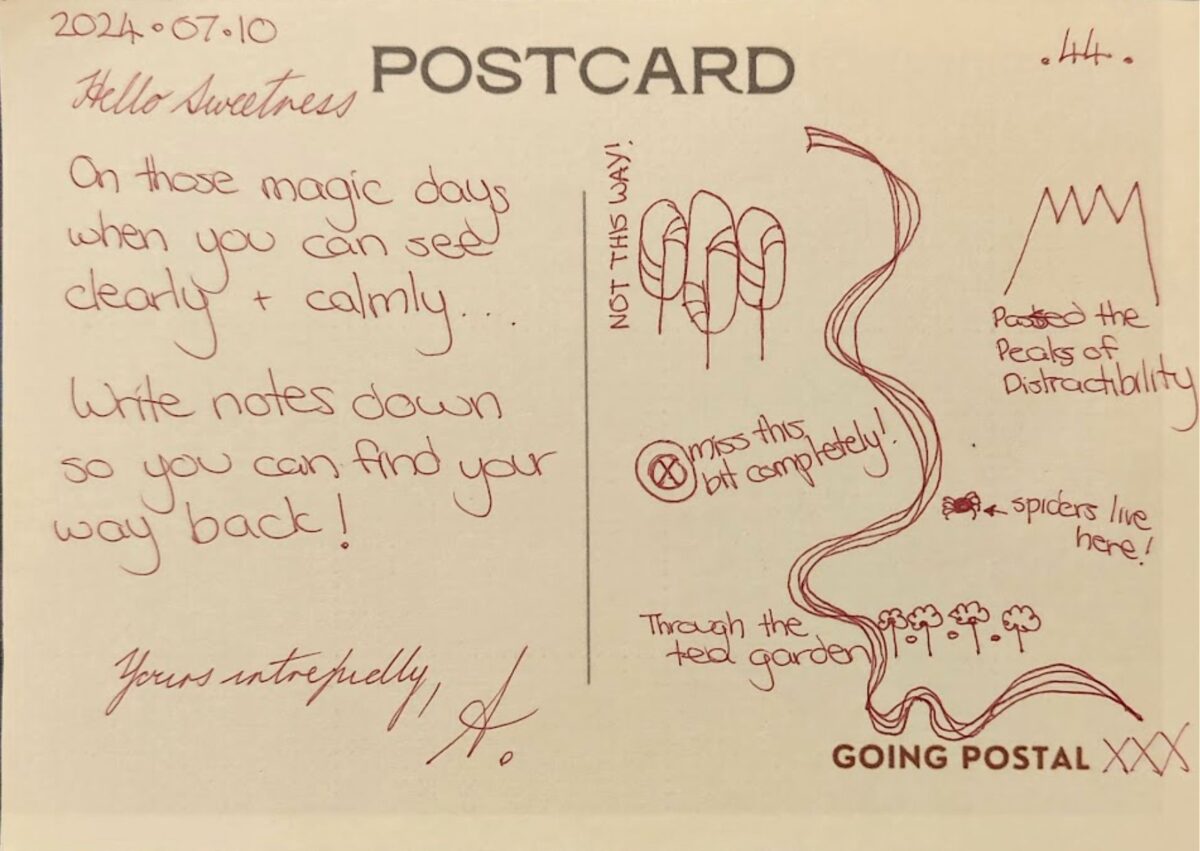 2024.07.10
POSTCARD
.44.
Hello Sweetness
On those magic days
when you can see
clearly + calmly...
Write notes down
so you can find your
way back!
Yours intrepidly,
A.
NOT THIS WAY!
Passed the
Peaks of
Distractibility
X miss this
bit completely!
spiders live
here!
Through the
tea garden
GOING POSTAL XXX